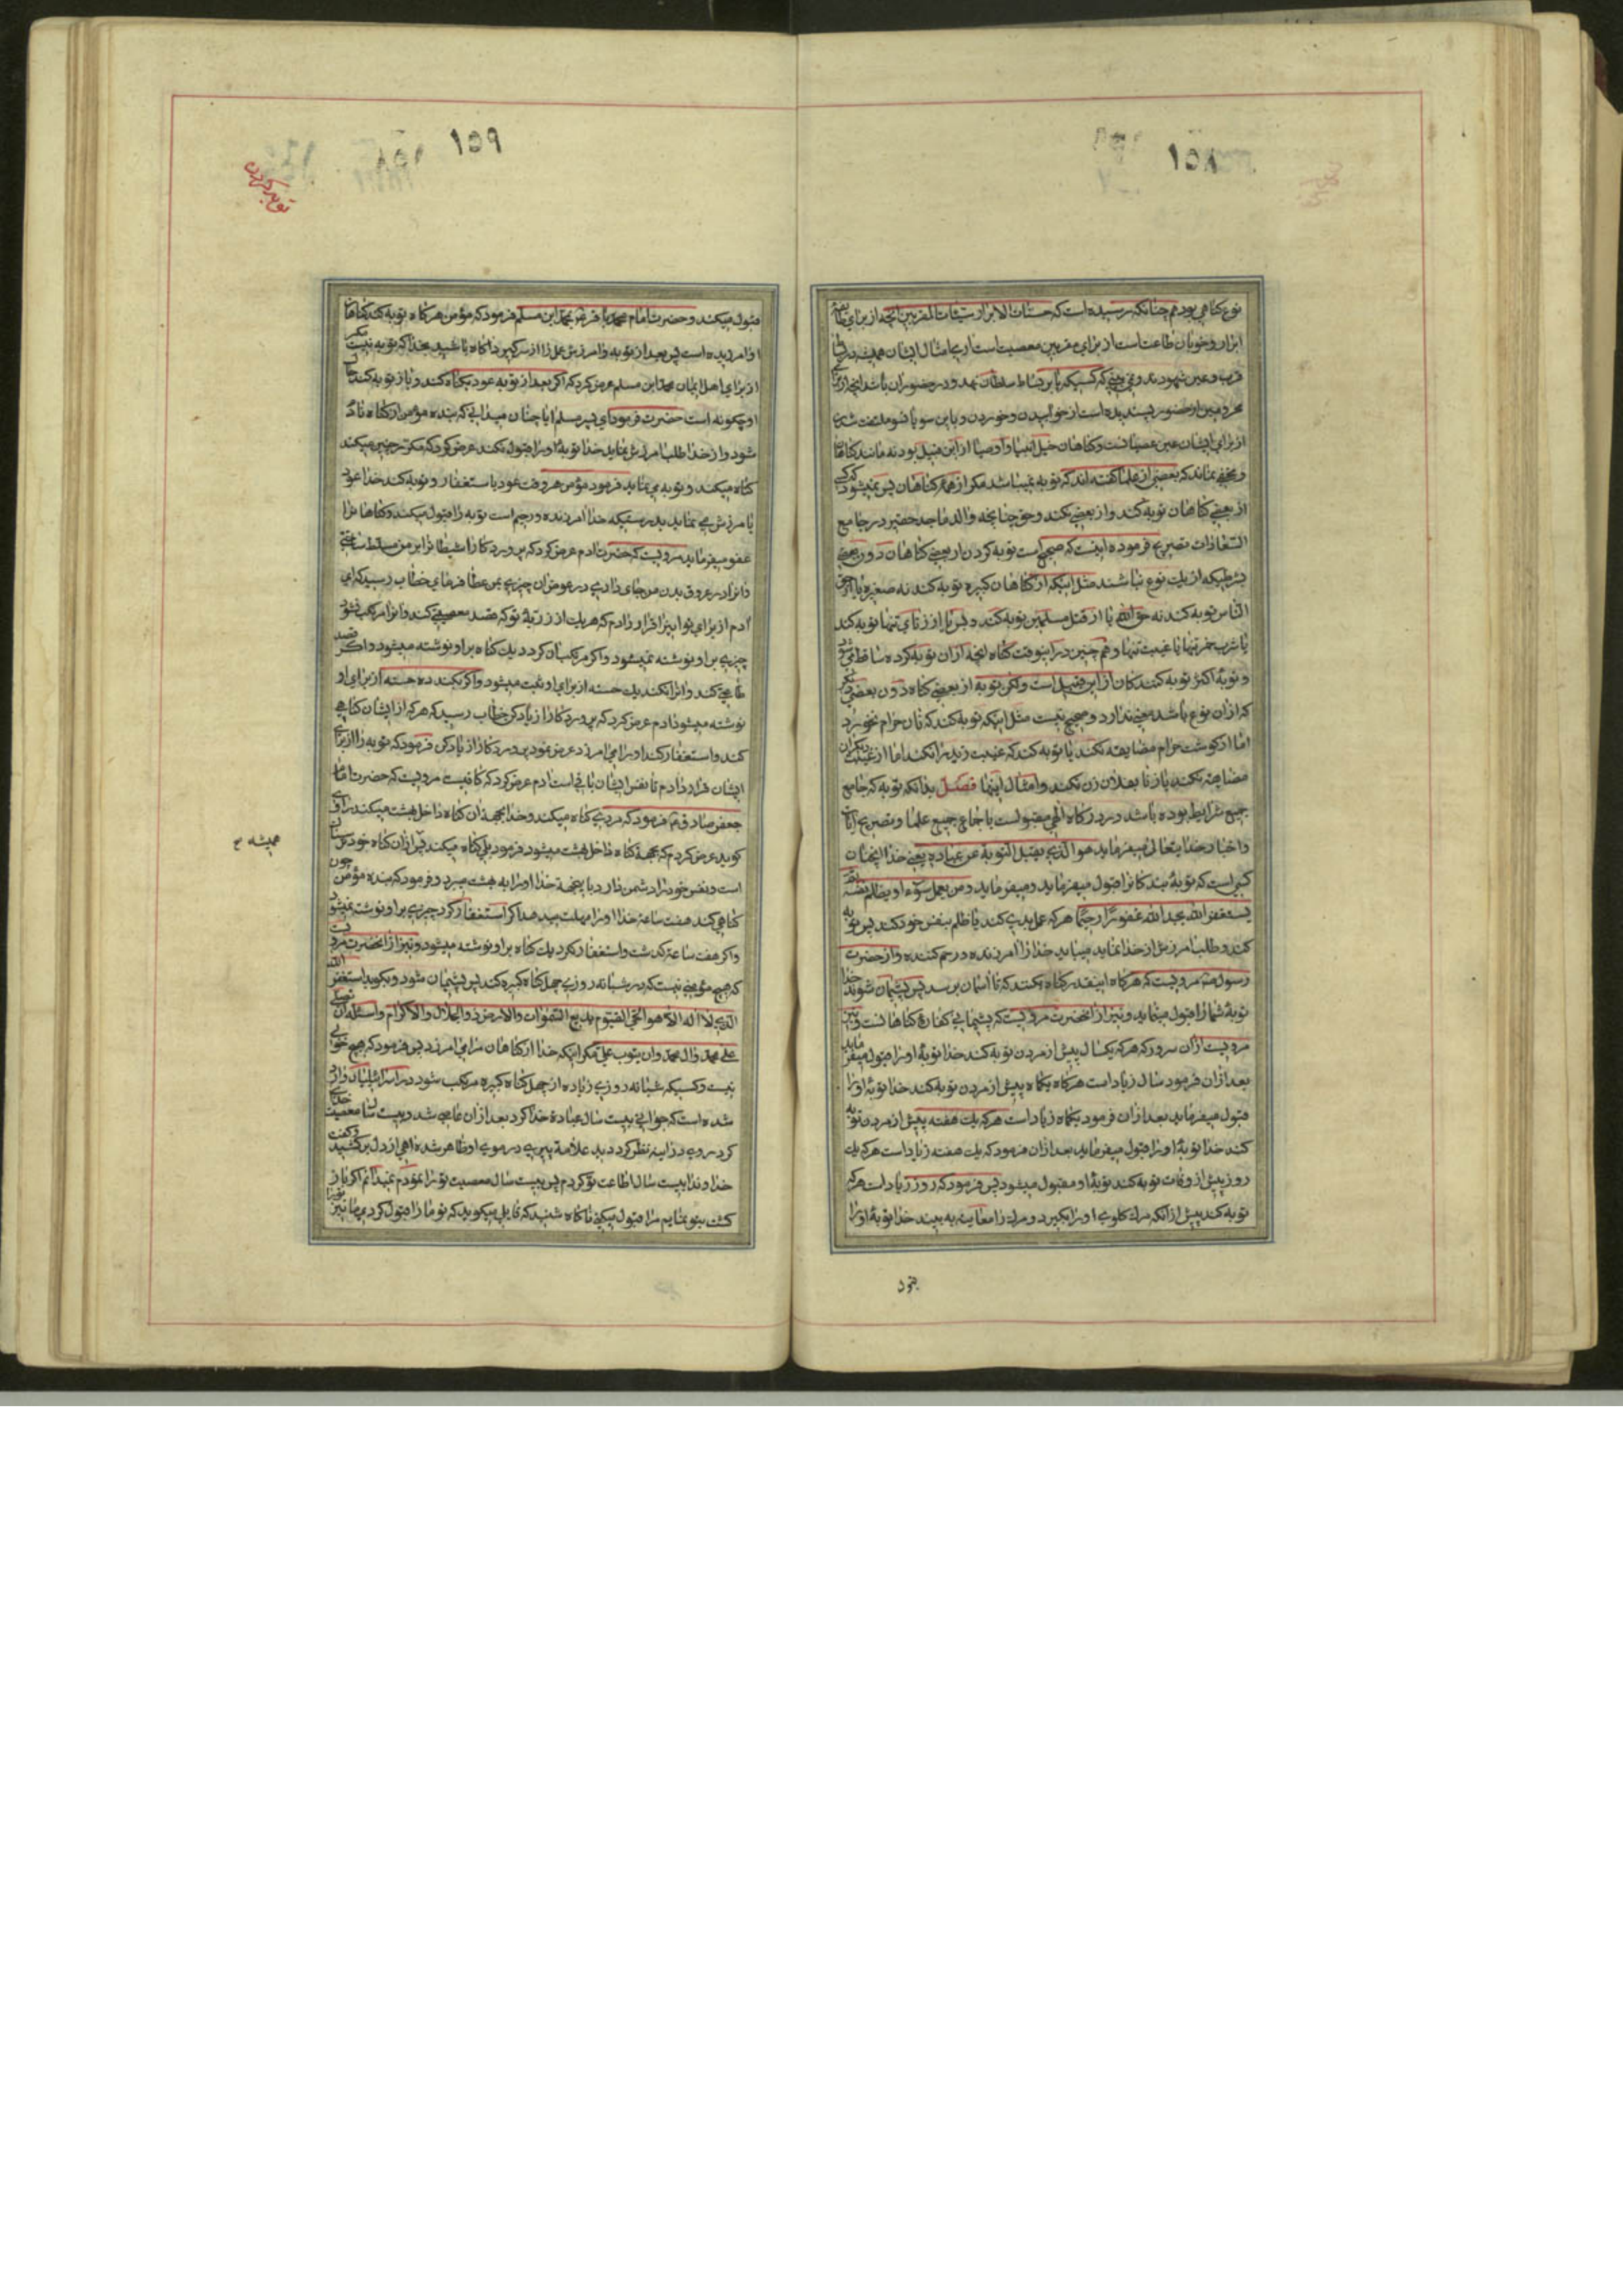 ۱۵۸
نوع کناهی بود هم چنانکه رسیده است که حسنات الابرار سیئات المقربین انچه از برای
ابرار و خوبان طاعت است از برای مقربین معصیت است اری امثال ایشان همیشه در
قرب و عین شهودند و نمی بینی که کسیکه پا بر بساط سلطان نهد و در حضور ان باشد انچه از برای
محرومین از حضور پسندیده است از خوابیدن و خوردن و با این سو یا انسو ملتفت شدن
از برای ایشان عین عصیانست و کناهان خیل انبیا و اوصیا از این قبیل بود نه مانند کناهان ما
و مخفی نماند که بعضی از علما کفته اند که توبه نمیباشد مکر از همه کناهان پس نمیشود که کسی
از بعضی کناهان توبه کند و از بعضی نکند و حق چنانچه والد ماجد حقیر در جامع
السعادات تصریح فرموده اینست که صحیح است توبه کردن از بعضی کناهان دون بعضی
بشرطیکه از یک نوع نباشند مثل اینکه از کناهان کبیره توبه کند نه صغیره یا از حق
الناس توبه کند نه حق الله یا از قتل مسلمین توبه کند و بس یا از زنای تنها توبه کند
یا شرب خمر تنها یا غیبت تنها و هم چنین در اینوقت کناه انچه از ان توبه کرده ساقط می شود
و توبهٔ اکثر توبه کنندکان از این قبیل است ولکن توبه از بعضی کناه دون بعضی دیکر
که از ان نوع باشد معنی ندارد و صحیح نیست مثل اینکه توبه کند که نان حرام نخورد
اما از کوشت حرام مضایقه نکند یا توبه کند که غیبت زید را نکند اما از غیبت دیکران
مضایقه نکند یا زنا بفلان زن نکند و امثال اینها فصل بدانکه توبه که جامع
جمیع شرایط بوده باشد در درکاه الهی مقبولست باجماع جمیع علما و تصریح ایات
و اخبار و خدایتعالی میفرماید هو الذی یقبل التوبة عن عباده یعنی خدا انچنان
کسی است که توبهٔ بندکانرا قبول میفرماید و میفرماید و من یعمل سوء او یظلم نفسه ثم
یستغفر الله یجد الله غفورا رحیما هر که عمل بدی کند یا ظلم بنفس خود کند پس توبه
کند و طلب امرزش از خدا نماید میباید خدا را امرزنده و رحم کننده و از حضرت
رسول مرویست که هرکاه اینقدر کناه بکنند که تا اسمان برسد پس پشیمان شوند خدا
توبهٔ شما را قبول مینماید و نیز از انحضرت مرویست که پشیمانی کفارهٔ کناهانست و نیز
مرویست از ان سرور که هر که یکسال پیش از مردن توبه کند خدا توبهٔ او را قبول میفرماید
بعد از ان فرمود سال زیاد است هرکاه یکماه پیش از مردن توبه کند خدا توبهٔ او را
قبول میفرماید بعد از ان فرمود یکماه زیاد است هر که یک هفته پیش از مردن توبه
کند خدا توبهٔ او را قبول میفرماید بعد از ان فرمود که یک هفته زیاد است هر که یک
روز پیش از وفات توبه کند توبهٔ او مقبول میشود پس فرمود که روز زیاد است هر که
توبه کند پیش از انکه مرک کلوی او را بکیرد و مرک را معاینه به بیند خدا توبهٔ او را
۱۵۹
توبه کردن
قبول میکند و حضرت امام محمد باقر ع بمحمد ابن مسلم فرمود که مؤمن هرکاه توبه کند کناهان
او امرزیده است پس بعد از توبه و امرزش عمل را از سر کیرد اکاه باشید بخدا که توبه نیست مکر
از برای اهل ایمان محمد ابن مسلم عرض کرد که اکر بعد از توبه عود بکناه کند و باز توبه کند حال
او چکونه است حضرت فرمود ای پسر مسلم ایا چنان میدانی که بنده مؤمن از کناه نادم
شود و از خدا طلب امرزش نماید خدا توبهٔ او را قبول نکند عرض کرد که مکرر چنین میکند
کناه میکند و توبه می نماید فرمود مؤمن هر وقت عود باستغفار و توبه کند خدا عود
بامرزش می نماید بدرستیکه خدا امرزنده و رحیم است توبه را قبول میکند و کناهان را
عفو میفرماید مرویست که حضرت ادم عرض کرد که پروردکارا شیطانرا بر من مسلط ساختی
و انرا در عروق بدن من جای دادی در عوض ان چیزی بمن عطا فرمای خطاب رسید که ای
ادم از برای تو اینرا قرار دادم که هریک از ذریهٔ تو که قصد معصیتی کند و انرا مرتکب نشود
چیزی بر او نوشته نمیشود و اکر مرتکب ان کردد یک کناه بر او نوشته میشود و اکر قصد
طاعتی کند و انرا نکند یک حسنه از برای او ثبت میشود و اکر بکند ده حسنه از برای او
نوشته میشود ادم عرض کرد که پروردکارا زیاد کن خطاب رسید که هر که از ایشان کناهی
کند و استغفار کند او را می امرزد عرض نمود پروردکارا زیاد کن فرمود که توبه را از برای
ایشان قرار دادم تا نفس ایشان باقی است ادم عرض کرد که کافیست مرویست که حضرت امام
جعفر صادق ع فرمود که مردی کناه میکند و خدا بجهة ان کناه داخل بهشت میکند راوی
کوید عرض کردم که بجهة کناه داخل بهشت میشود فرمود بلی کناه میکند پس از ان کناه خود ترسان
همیشه
است و نفس خود را دشمن دارد باینجهة خدا او را به بهشت میبرد و فرمود که بنده مؤمن چون
کناهی کند هفت ساعة خدا او را مهلت میدهد اکر استغفار کرد چیزی بر او نوشته نمیشود
و اکر هفت ساعة کذشت و استغفار نکرد یک کناه بر او نوشته میشود و نیز از انحضرت مرویست
که هیچ مؤمنی نیست که در شبانه روزی چهل کناه کبیره کند پس پشیمان شود و بکوید استغفر الله
الذی لا اله الا هو الحی القیوم بدیع السموات والارض ذو الجلال والاکرام واسئله ان یصلی
علی محمد وال محمد وان یتوب علی مکر اینکه خدا از کناهان او می امرزد پس فرمود که هیچ خوبی
نیست و کسیکه شبانه روزی زیاده از چهل کناه کبیره مرتکب شود در اسرائیلیات وارد
شده است که جوانی بیست سال عبادة خدا کرد بعد از ان عاصی شد و بیست سال معصیت خدای
کرد روی در اینه نظر کرد دید علامة پیری در موی او ظاهر شده اهی از دل برکشید و کفت
خداوندا بیست سال اطاعت تو کردم پس بیست سال معصیت تو را نمودم نمیدانم اکر باز
کشت بتو نمایم مرا قبول میکنی ناکاه شنید که قایلی میکوید که تو ما را قبول کردی ما نیز تو را